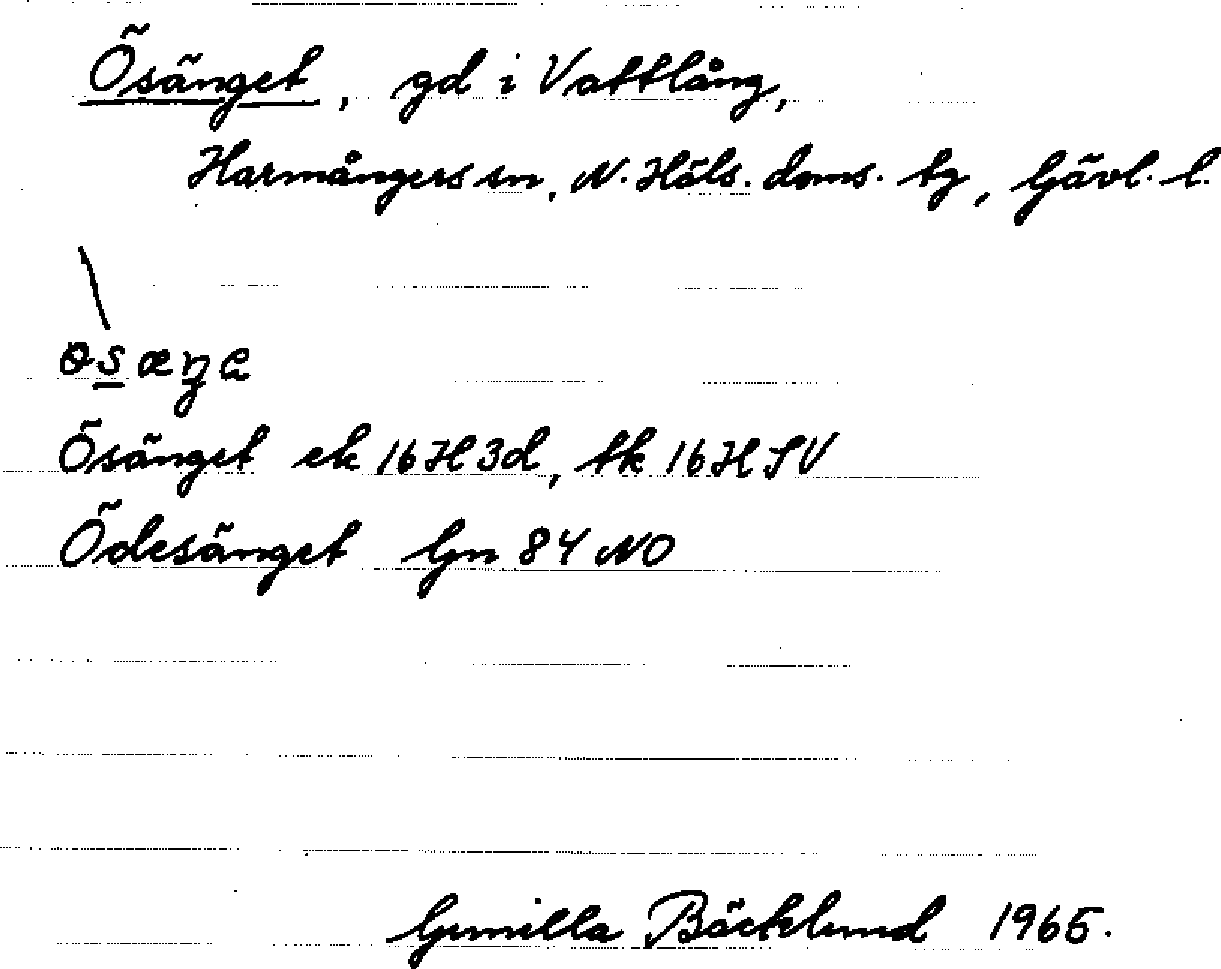 Ösänget, gd i Vattlång,
Harmångers sn, N. Häls. doms. tg, Gävl. l.
ɵs̲æŋa
Ösänget ek 16H3d, tk 16H SV
Ödesänget Gn 84 NO
Gunilla Bäcklund 1965.